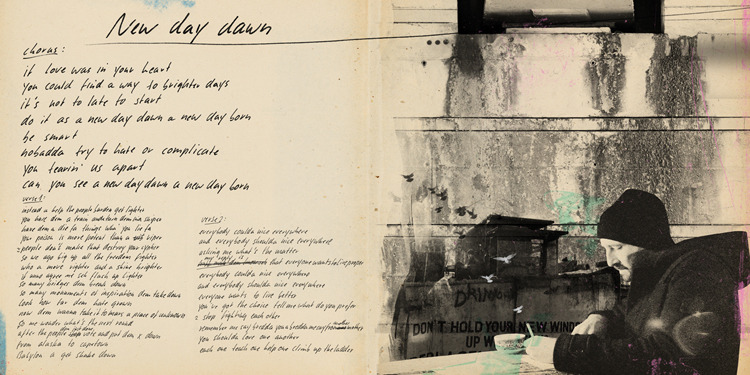 New day dawn
chorus:
if love was in your heart
you could find a way to brighter days
it's not to late to start
do it as a new day dawn a new day born
be smart
nobadda try to hate or complicate
you tearin' us apart
can you see a new day dawn a new day born
verse1:
instead a help the people burden get lighter
you have dem a train
have dem a die fa things
your poison is more potent than a viper
people don't make that destroy your cypher
So we ago big up all the freedom fighters
who a move tighter and a shine brighter
if unno agree me seh flash up lighter
So many bridges dem break down
So many monuments of inspiration dem take down
look how far dem hate grown
now dem wanna take it to mars a place of unknown
So me wonder what's the next round
after the people vote and put dem x down
from alaska to capetown
Babylon a get shake down
verse2:
everybody coulda nice everywhere
and everybody shoulda nice everywhere
asking me what's the matter
my reply is
that everyone wants to live proper
everybody coulda nice everywhere
and everybody shoulda nice everywhere
everyone wants to live better
you've got the choice tell me what do you prefer
stop fighting each other
remember me say bredda your bredda no say from another
you shoulda love one another
each one teach one help one climb up the ladder
DON'T HOLD YOUR NEW WIND
UP W